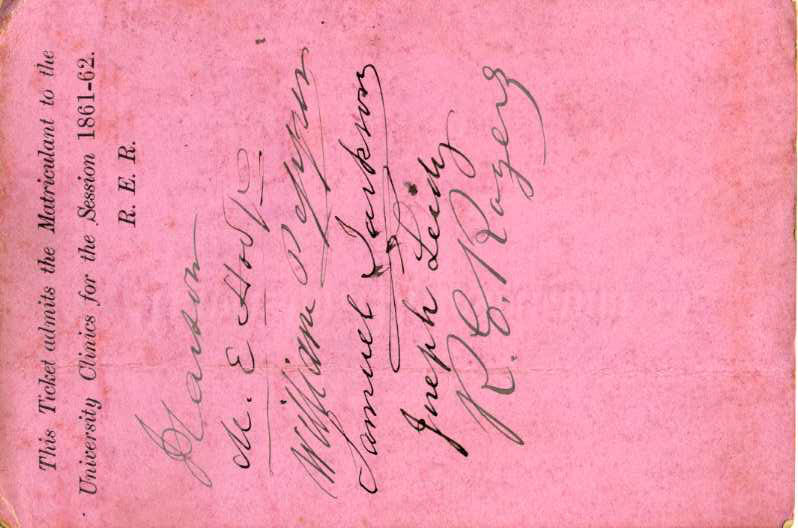 This Ticket admits the Matriculant to the
University Clinics for the Session 1861-62.
R. E. R.
J Carson
H. L. Hodge
William Pepper
Samuel Jackson
Joseph Leidy
R. E. Rogers